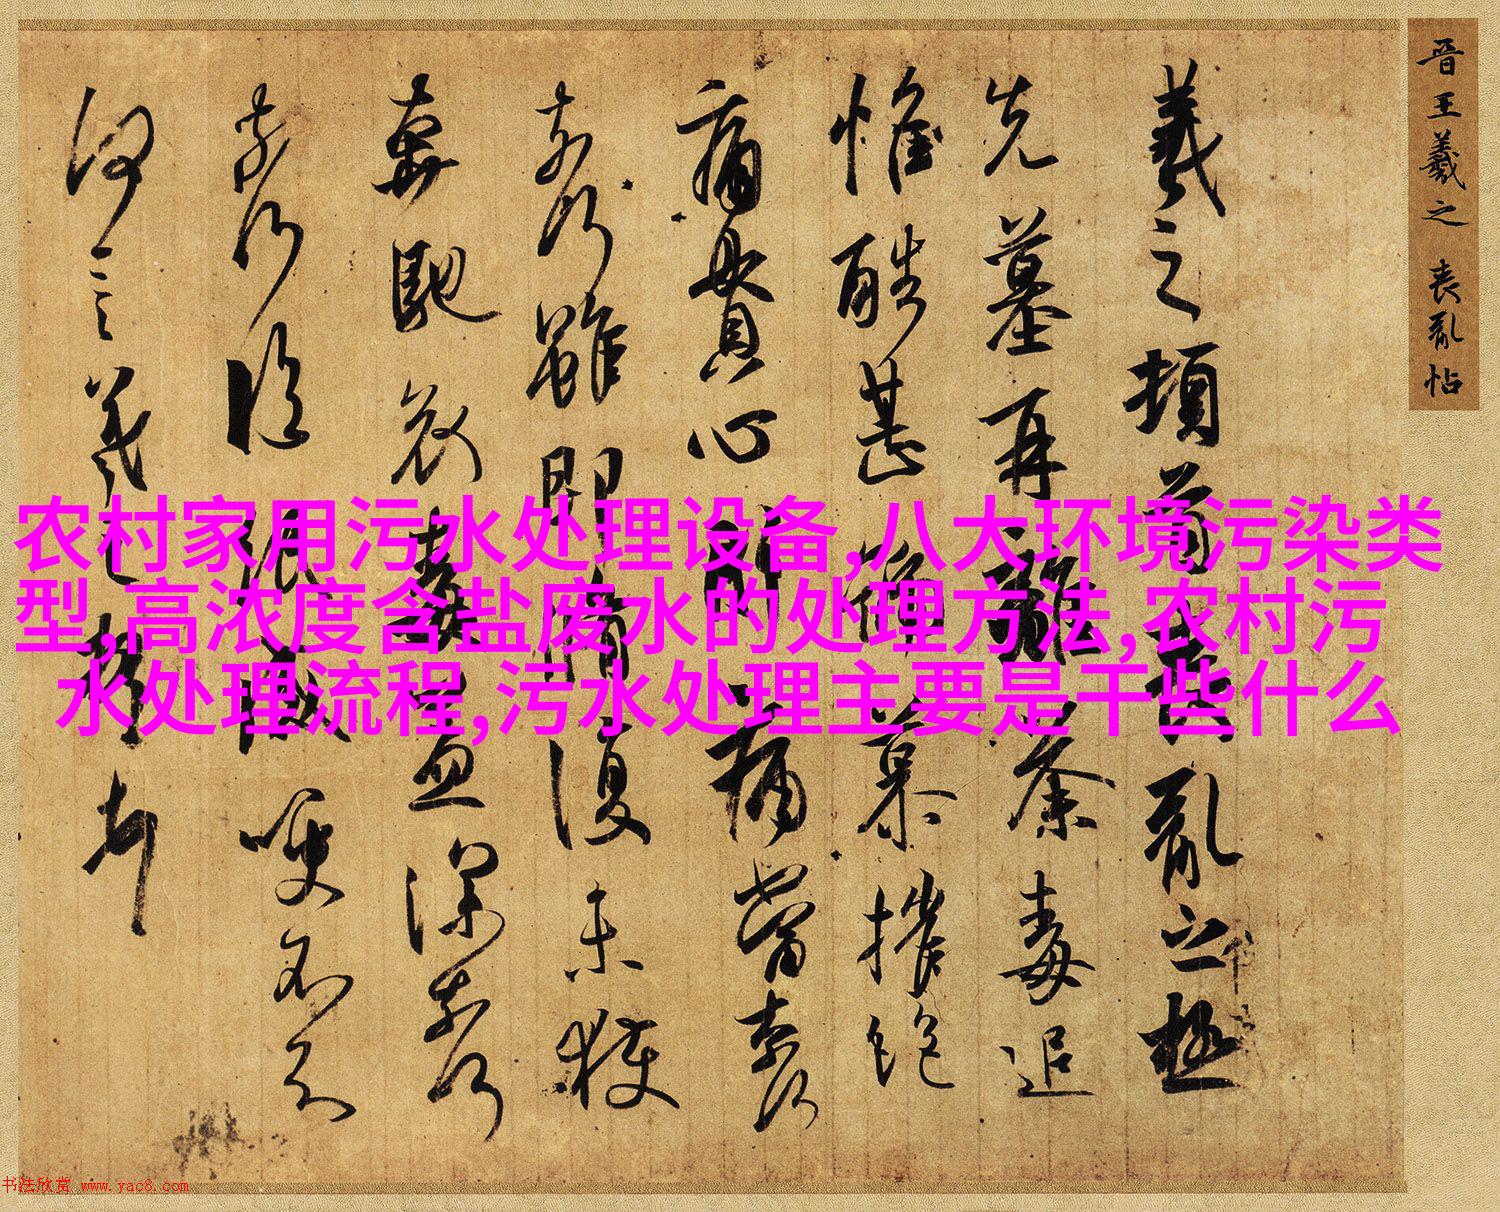 晋王羲之 喪亂帖
羲之頓首喪亂之極
先墓再離荼毒追
惟酷甚號慕摧絶
痛貫心肝痛當奈何
奈何雖即脩復未獲
奔馳哀毒益深奈何
奈何臨紙感哽不知
何言羲之頓首
农村家用污水处理设备,八大环境污染类
型,高浓度含盐废水的处理方法,农村污
水处理流程,污水处理主要是干些什么
书法欣赏 www.yac8.com